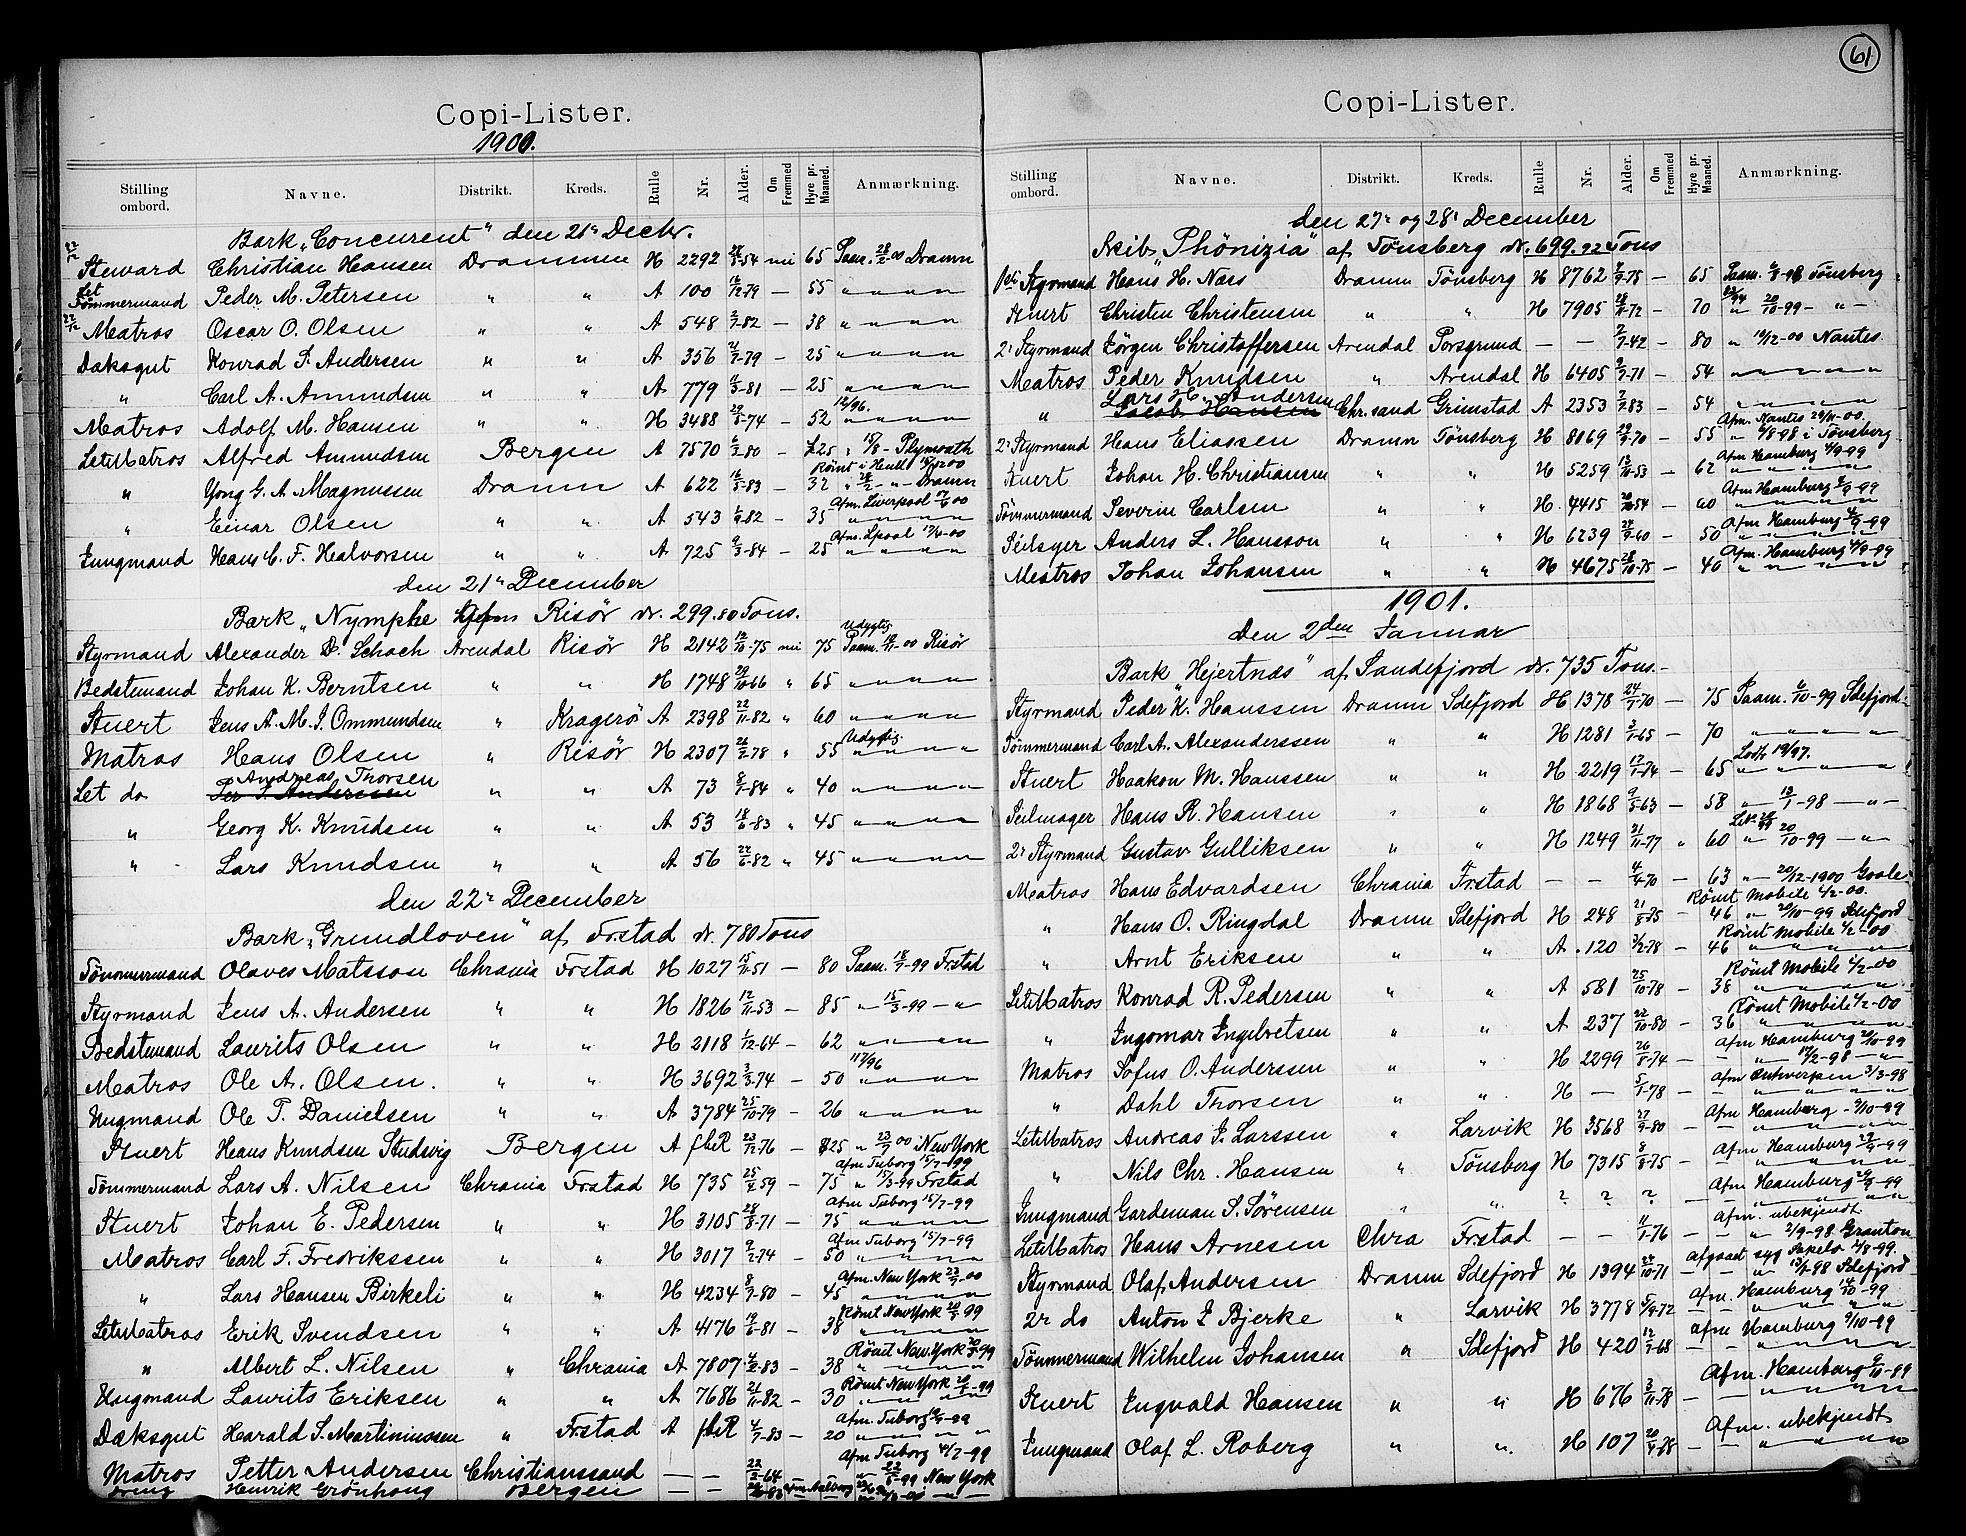 61
Copi-Lister.
1900.
Stilling ombord. Navne. Distrikt. Kreds. Rulle Nr. Alder. Om Fremmed Hyre pr. Maaned. Anmærkning.
Bark „Concurent“ den 21' Decbr.
Steward Christian Hansen Drammen H 2292 54 nei 65 Paam. 28/2-00 Dramn
Let Tømmermand Peder M. Petersen " " A 100 12-79 — 55 " " " "
Matros Oscar O. Olsen " " A 548 82 — 38 " " " "
Daksgut Konrad S. Andersen " " A 356 79 — 25 " " " "
" Carl A. Amundsen " " A 779 81 — 25 " " " "
Matros Adolf M. Hansen " " H 3488 74 — 52 12/96. " " " "
LetMatros Alfred Amundsen Bergen A 7570 80 — £25 " Plymouth
" Yong G. A. Magnussen Dramn A 622 83 — 32 Rømt i Hull Dramn
" Einar Olsen " " A 543 82 — 35 Afm. Liverpool
Jungmand Hans C. F. Halvorsen " " A 725 9/3-84 — 25
den 21' December
Bark „Nymphe Risör dr. 299.80 Tons.
Styrmand Alexander D. Schach Arendal Risör H 2142 12/10-75 nei 75 Udygtig Paam. -00 Risör
Bedstemand Johan K. Berntsen " " H 1748 29/10-66 " 65 " " " "
Stuert Jens A. M. J. Ommundsen " Kragerö A 2398 22/11-82 " 60 " " " "
Matros Hans Olsen " Risör H 2307 78 " 55 Udygtig " " " "
Let do Andreas Thorsen " " A 73 84 " 40 " " " "
Per J. Andersen
" Georg K. Knudsen " " A 53 18/6-83 " 45 " " " "
" Lars Knudsen " " A 56 22/6-82 " 45 " " " "
den 22' December
Bark „Grundloven“ af Frstad dr. 780 Tons
Tömmermand Olaves Matsson Chrania Frstad H 1027 15/11-51 — 80 Paam. 18/7-99 Frstad
Styrmand Jens A. Andersen " " H 1826 12/11-53 — 85 " 15/3-99 — " —
Bedstemand Laurits Olsen " " H 2118 1/12-64 — 62 " " " "
Matros Ole A. Olsen. " " H 3692 3/3-74 — 50 " " " "
Ungmand Ole T. Danielsen " " A 3784 25/10-79 — 26 " " " "
Stuert Hans Knudsen Studsvig Bergen A fbR 23/12-76 — $25 " 23/7 00 i New York
Tömmermand Lars A. Nilsen Chrania Frstad H 735 59 — 75 Afm Tuborg 15/7-99 Frstad
Stuert Johan E. Pedersen " " H 3105 71 — 75 Afm Tuborg 15/7-99
Matros Carl F. Fredrikssen " " H 3017 9/2-74 — 50 Afm Tuborg 15/7-99
" Lars Hansen Birkeli " " H 4234 80 — 45 Afm. New York 23/7-00
LetMatros Erik Svendsen " " A 4176 19/6-81 — 38 Rømt New York 99
" Albert L. Nilsen " Chrania A 7807 83 — 38 Rømt New York 99
Ungmand Laurits Eriksen " " A 7686 21/11-82 — 30 Rømt New York 99
Dæksgut Harald S. Martiniussen " Frstad A fbR 4/7-83 — 20 Afm. Tuborg 99
Matros Petter Andersen Christianssand — — 64 Afm Tuborg 4/7-99 New York
Henrik Grönhoug Bergen — — 83
Copi-Lister.
Stilling ombord. Navne. Distrikt. Kreds. Rulle Nr. Alder. Om Fremmed Hyre pr. Maaned. Anmærkning.
den 27' og 28' December
Skib „Phönizia“ af Tönsberg dr. 699.92 Tons
1ste Styrmand Hans H. Næss Dramn Tönsberg H 8762 75 — 65 Paam. 98 Tönsberg
Stuert Christen Christensen " " H 7905 72 — 70 " 20/10-99 — " —
2' Styrmand Jörgen Christoffersen Arendal Porsgrund — — 42 — 80 " 19/12-00 Nantes
Matros Peder Knudsen " Arendal H 6405 71 — 54 " " " "
" Lars H. Andersen Chr.sand Grimstad A 2353 83 — 54 " " " "
Jacob Hansen
2' Styrmand Hans Eliassen Dramn Tönsberg H 8069 70 — 55 Afm. Nantes 29/11-00. i Tönsberg
Stuert Johan H. Christiansen " " H 5259 53 — 62 Afm Hamburg 4/9-99
Tömmermand Severin Carlsen " " H 4415 54 — 60 Afm Hamburg 4/9-99
Seilsyer Anders L. Hansson " " H 6239 60 — 50 Afm Hamburg 4/9-99
Matros Johan Johansen " " H 4675 28/10-75 — 40 Afm. Hamburg 4/9-99
1901.
Den 2den Januar
Bark „Hjertnæs“ af Sandefjord dr. 735 Tons.-
Styrmand Peder K. Hanssen Dramn Sdefjord H 1378 24/7-70 — 75 Paam. 6/10-99 Sdefjord
Tømmermand Carl A. Alexanderssen " " H 1281 65 — 70 " " " "
Stuert Haakon M. Hanssen " " H 2219 74 — 65 " " " "
Seilmager Hans R. Hansen " " H 1868 9/5-63 — 58 " 13/1-98 — " —
2' Styrmand Gustav Gulliksen " " H 1249 21/11-77 " 60 " 20/10-99 — " —
Matros Hans Edvardsen Chrania Frstad — — 4/4-70 — 63 " — 20/12-1900 Goole
" Hans O. Ringdal Dramn Sdefjord H 248 21/8-75 — 46 Rømt Mobile 1/2-00. " 20/10-99 Sdefjord
" Arnt Eriksen " " A 120 78 — 46 Rømt Mobile 1/2-00
LetMatros Konrad R. Pedersen " " A 581 25/10-78 — 38 Rømt Mobile 1/2-00
" Ingomar Ingebretsen " " A 237 22/10-80 — 36 Rømt Mobile 1/2-00
Matros Sofus O. Anderssen " " H 2299 26/8-74 — Afm Hamburg 20/10-99
" Dahl Thorsen " " H — 5/1-78 — Afm Antwerpen 3/3-98
LetMatros Andreas J. Larssen " Larvik H 3568 80 — Afm Hamburg - 9/10-99
" Nils Chr. Hansen " Tönsberg H 7315 8/8-75 — Afm Hamburg 29/9-99
Jungmand Gardeman S. Sörensen " " ? ? ? — Afm Hamburg 29/9-99
LetMatros Hans Arnesen Chra Frstad — — 76 — Afm. ubekjendt " 2/9-98 Granton
Styrmand Olaf Andersen Dramn Sdefjord H 1394 71 — afgaaet syg 98 Sdefjord
2r do Anton J Bjerke " Larvik H 3778 72 — Afm. Hamburg 14/10-99
Tömmermand Wilhelm Johansen " Sdefjord H 420 68 — afm Hamburg 9/10-99
Stuert Ingvald Hansen " " H 676 3/11-78 — Afm. Hamburg 9/10-99
Jungmand Olaf L. Roberg " " H 107 — Afm. ubekjendt